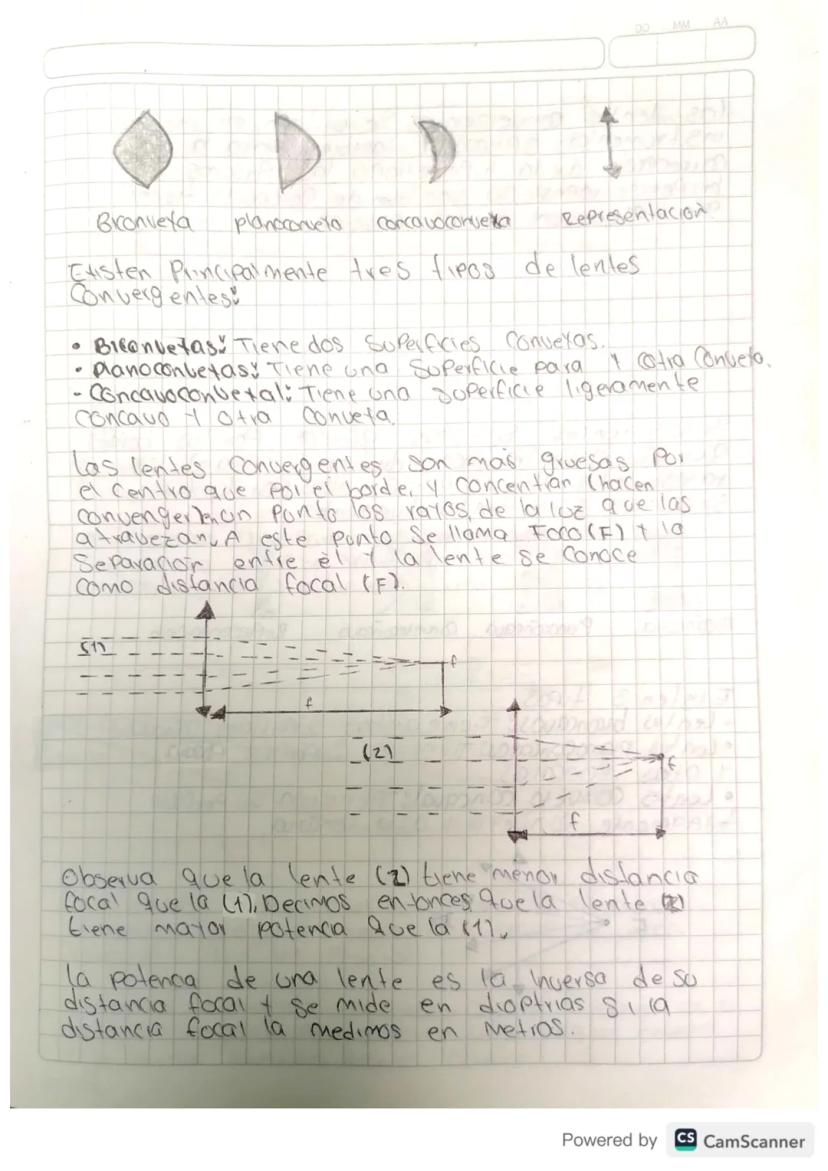 DD MM AA
Biconvexa planoconvexo concavoconvexa Representación
Existen Principalmente tres tipos de lentes
Convergentes:
• Biconvexas: Tiene dos Superficies Convexas.
• Planoconvexas: Tiene una Superficie para y cotra Convexo.
- Concavoconvexal: Tiene una superficie ligeramente
concavo y otra convexa.
Las lentes Convergentes son más gruesas por
el centro que por el borde, y concentran (hacen
convenger) en un punto los rayos, de la luz que las
atraviezan. A este punto se llama Foco (F) y la
separación entre él y la lente se conoce
como distancia focal (F).
(1)
f
f
(2)
f
f
Observa que la lente (2) tiene menor distancia
focal que la (1). Decimos entonces que la lente (2)
tiene mayor potenca que la (1).
La potenca de una lente es la inversa de su
distancia focal y se mide en dioptrias si la
distancia focal la medimos en metros.
Powered by CS CamScanner